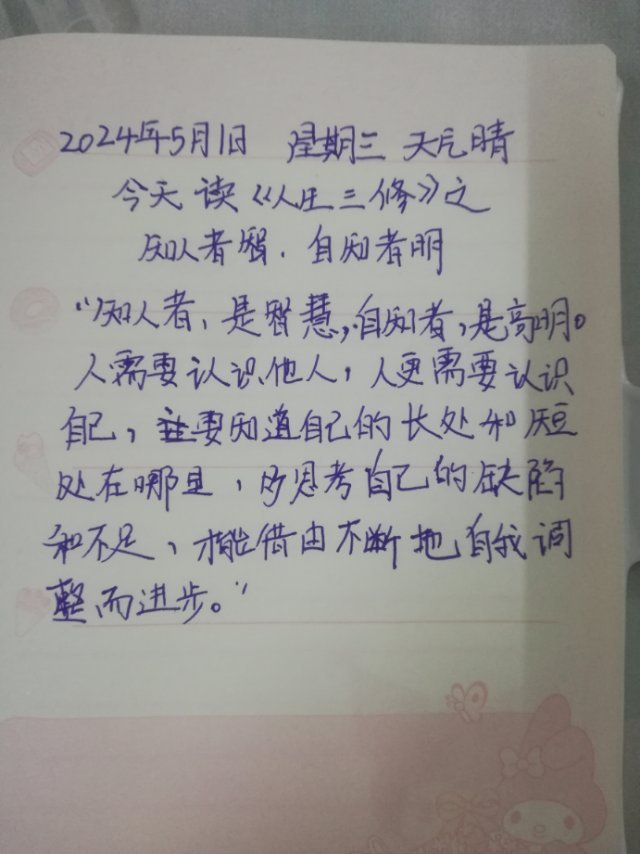 2024年5月1日 星期三 天气晴
今天读《人生三修》之
知人者智．自知者明
“知人者，是智慧，自知者，是高明。
人需要认识他人，人更需要认识
自己，主要知道自己的长处和短
处在哪里，多思考自己的缺陷
和不足，才能借由不断地自我调
整而进步。”